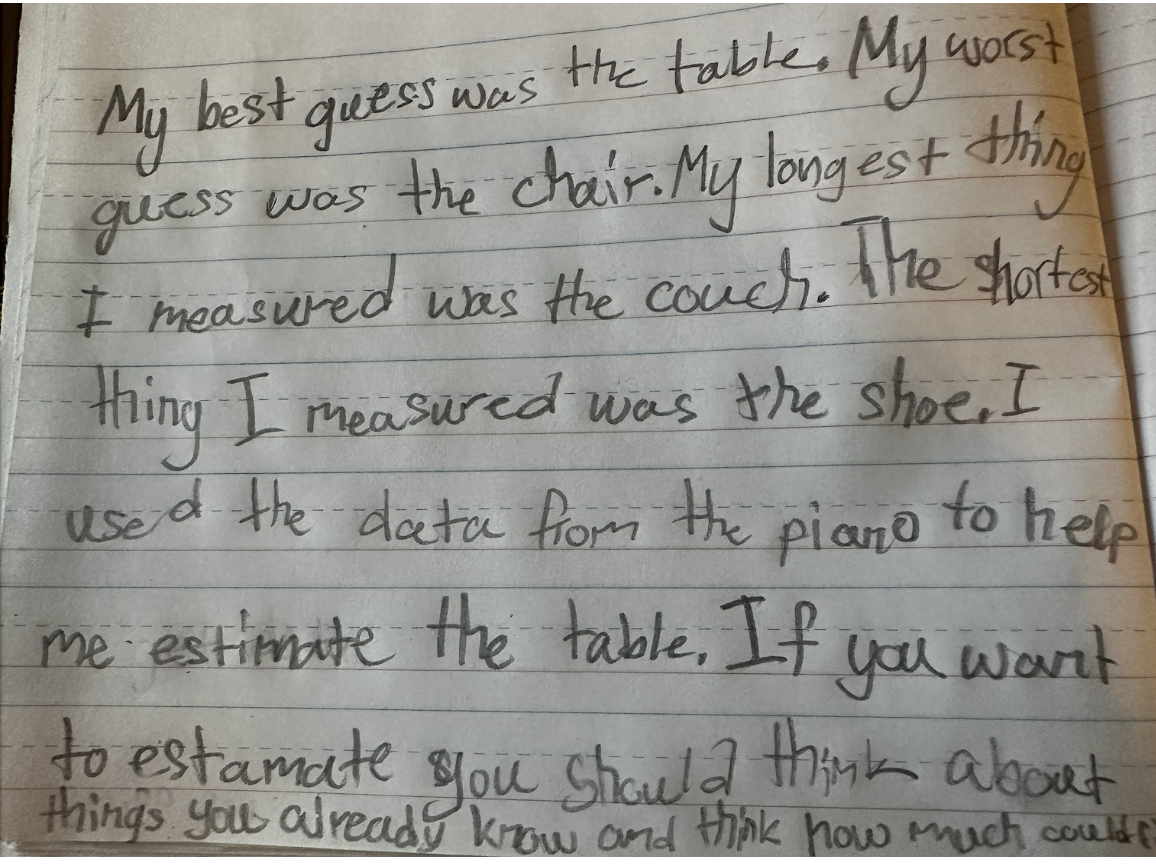 My best guess was the table. My worst
guess was the chair. My longest thing
I measured was the couch. The shortest
thing I measured was the shoe. I
used the data from the piano to help
me estimate the table. If you want
to estamate you should think about
things you already know and think how much could